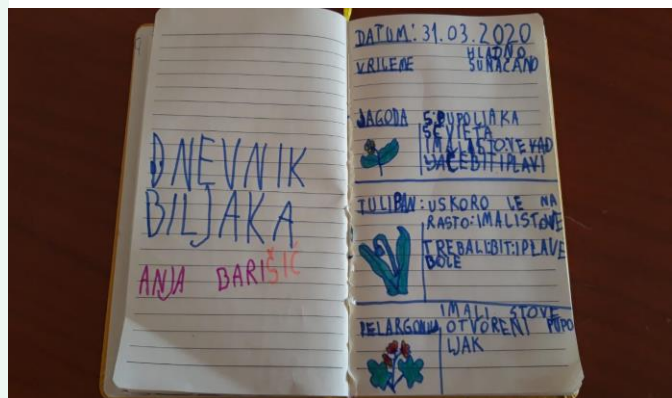 DNEVNIK
BILJAKA
ANJA BARIŠIĆ
DATUM: 31.03.2020
VRIJEME HLADNO
SUNAČANO
JAGODA 5:PUPOLJAKA
CVIJETA
IMALASTOVE KAD
BITIPLAVI
TULIPAN: USKORO JE NA
RASTO:IMALISTOVE
TREBALEBIT:IPLAVE
BOJE
PELARGONIJA IMALI STOVE
OTVORENI PUPO
LJAK